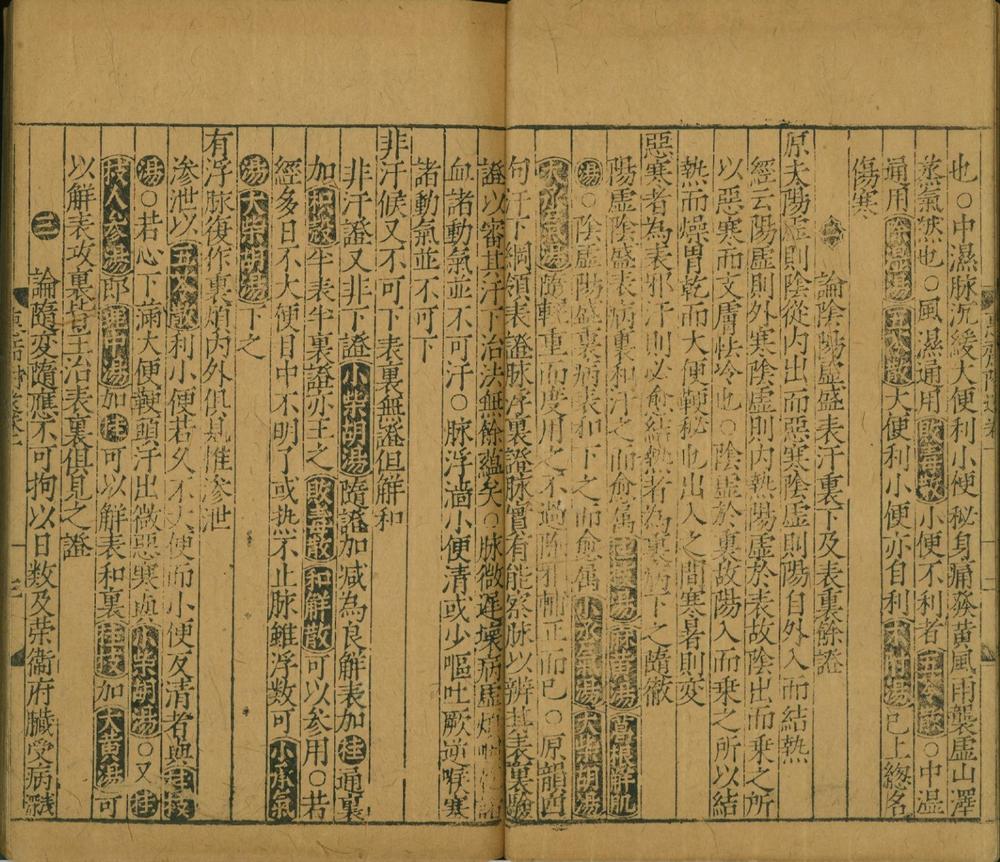 也○中濕脉沉緩大便利小便秘身痛發黃風雨襲虛山澤
蒸氣然也○風濕通用敗毒散小便不利者五苓散○中湿
通用除濕湯五苓散大便利小便亦自利朮附湯已上緫名
傷寒
論陰陽虛盛表汗裏下及表裏餘證
原夫陽虛則陰從内出而惡寒陰虛則陽自外入而結熱
經云陽虛則外寒陰虛則内熱陽虛於表故陰出而乗之所
以惡寒而文膚怯冷也○陰虛於裏故陽入而乗之所以結
熱而燥胃乾而大便鞕秘也出入之間寒暑則变
惡寒者為表邪汗則必愈結熱者為裏下之隨徹
陽虛陰盛表病裏和汗之而愈属麻黄湯葛根解肌
湯○陰虛陽盛裏病表和下之而愈属小承氣湯大柴胡湯
大承氣湯隨輕重而度用之不過除邪輔正而已○原韻四
句汗下綱領表證脉浮裏證脉實有能察脉以辨其表裏驗
證以審其汗下治法無餘蕴矣○脉微遲壊病虛煩
血諸動氣並不可汗○脉浮濇小便清或少嘔吐厥逆喉寒
諸動氣並不可下
非汗候又不可下表裏無證但解和
非汗證又非下證小柴胡湯隨證加减為良解表加桂通裏
加和散半表半裏證亦主之敗毒散和解散可以参用○若
經多日不大便目中不明了或热不止脉雖浮数可小承氣
湯大柴胡湯下之
有浮脉復作裏煩内外俱見惟滲泄
滲泄以五苓散利小便若久不大便而小便反清者與桂枝
湯○若心下滿大便鞕頭汗出微惡寒與小柴胡湯○又桂
枝人参湯即理中湯加桂可以解表和裏桂枝加大黄湯可
以解表攻裏皆主治表裏俱見之證
三　論隨変隨應不可拘以日数及荣衛府臓受病